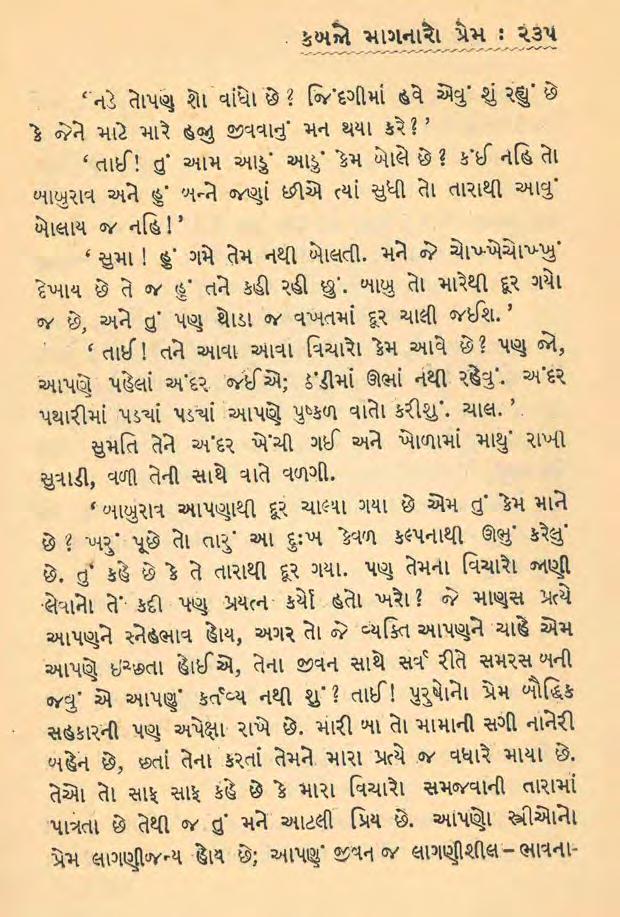 કબજો માગનારો પ્રેમ : ૨૩૫
‘નડે તોપણ શો વાંધો છે? જિંદગીમાં હવે એવું શું રહ્યું છે
કે જેને માટે મારે હજુ જીવવાનું મન થયા કરે?’
‘તાઈ! તું આમ આડું આડું કેમ બોલે છે? કંઈ નહિ તો
બાબુરાવ અને હું બન્ને જણાં છીએ ત્યાં સુધી તો તારાથી આવું
બોલાય જ નહિ!’
‘સુમા! હું ગમે તેમ નથી બોલતી. મને જે ચોખ્ખેચોખ્ખું
દેખાય છે તે જ હું તને કહી રહી છું. બાબુ તો મારેથી દૂર ગયો
જ છે, અને તું પણ થોડા જ વખતમાં દૂર ચાલી જઈશ.’
‘તાઈ! તને આવા આવા વિચારો કેમ આવે છે? પણ જો,
આપણે પહેલાં અંદર જઈએ; ઠંડીમાં ઊભાં નથી રહેવું. અંદર
પથારીમાં પડ્યાં પડ્યાં આપણે પુષ્કળ વાતો કરીશું. ચાલ.’
સુમતિ તેને અંદર ખેંચી ગઈ અને ખોળામાં માથું રાખી
સુવાડી, વળી તેની સાથે વાતે વળગી.
‘બાબુરાવ આપણાથી દૂર ચાલ્યા ગયા છે એમ તું કેમ માને
છે? ખરું પૂછે તો તારું આ દુઃખ કેવળ કલ્પનાથી ઊભું કરેલું
છે. તું કહે છે કે તે તારાથી દૂર ગયા. પણ તેમના વિચારો જાણી
લેવાનો તેં કદી પણ પ્રયત્ન કર્યો હતો ખરો? જે માણુસ પ્રત્યે
આપણને સ્નેહભાવ હોય, અગર તો જે વ્યક્તિ આપણને ચાહે એમ
આપણે ઇચ્છતા હોઈએ, તેના જીવન સાથે સર્વ રીતે સમરસ બની
જવું એ આપણું કર્તવ્ય નથી શું? તાઈ! પુરુષોનો પ્રેમ બૌદ્ધિક
સહકારની પણ અપેક્ષા રાખે છે. મારી બા તો મામાની સગી નાનેરી
બહેન છે, છતાં તેના કરતાં તેમને મારા પ્રત્યે જ વધારે માયા છે.
તેઓ તો સાફ સાફ કહે છે કે મારા વિચારો સમજવાની તારામાં
પાત્રતા છે તેથી જ તું મને આટલી પ્રિય છે. આપણો સ્ત્રીઓનો
પ્રેમ લાગણીજન્ય હોય છે; આપણું જીવન જ લાગણીશીલ – ભાવના-